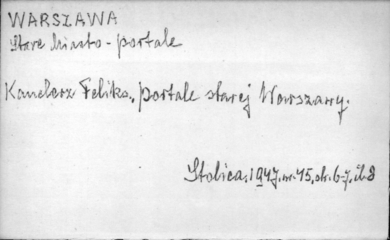 WARSZAWA
Stare Miasto - portale
Kanclerz Feliks., portale starej Warszawy.
Stolica. 1947. nr. 45, str. 6-7, il. 8